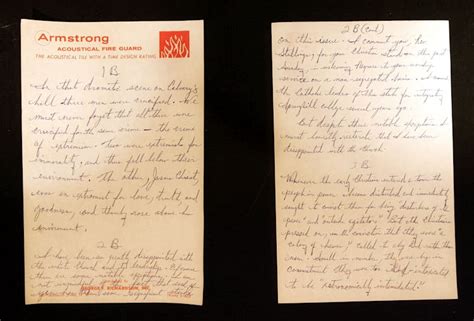 Armstrong
ACOUSTICAL FIRE GUARD
THE ACOUSTICAL TILE WITH A TIME DESIGN RATING
1 B
In that dramatic scene on Calvary's
hill three men were crucified. We
must never forget that all three were
crucified for the same crime - the crime
of extremism. Two were extremists for
immorality, and thus fell below their
environment. The other, Jesus Christ,
was an extremist for love, truth, and
goodness, and thereby rose above his
environment.
2 B
I have been so greatly disappointed with
the white church and its leadership. Of course
there are some notable
not
on this issue. I commend you, Rev
Stallings, for your Christian stand on this past
Sunday in welcoming Negroes to your worship
service on a non segregated basis. I commend
the Catholic leaders of this state for integrating
Springhill college several years ago.
But despite these notable exceptions I
must honestly reiterate that I have been
disappointed with the church.
3 B
Wherever the early Christians entered a town the
people in power became disturbed and immediately
sought to convict them for being "disturbers of the
peace" and "outside agitators." But the Christians
pressed on, in the conviction that they were "a
colony of heaven" called to obey God rather than
men. Small in number, they were big in
commitment. They were too God intoxicated
to be "astronomically intimidated."